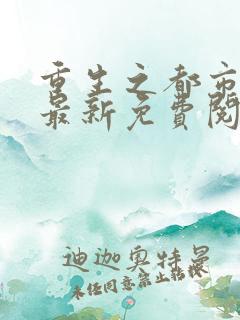 重生之都市
最新免费阅
迪迦奥特曼
未经同意禁止转载